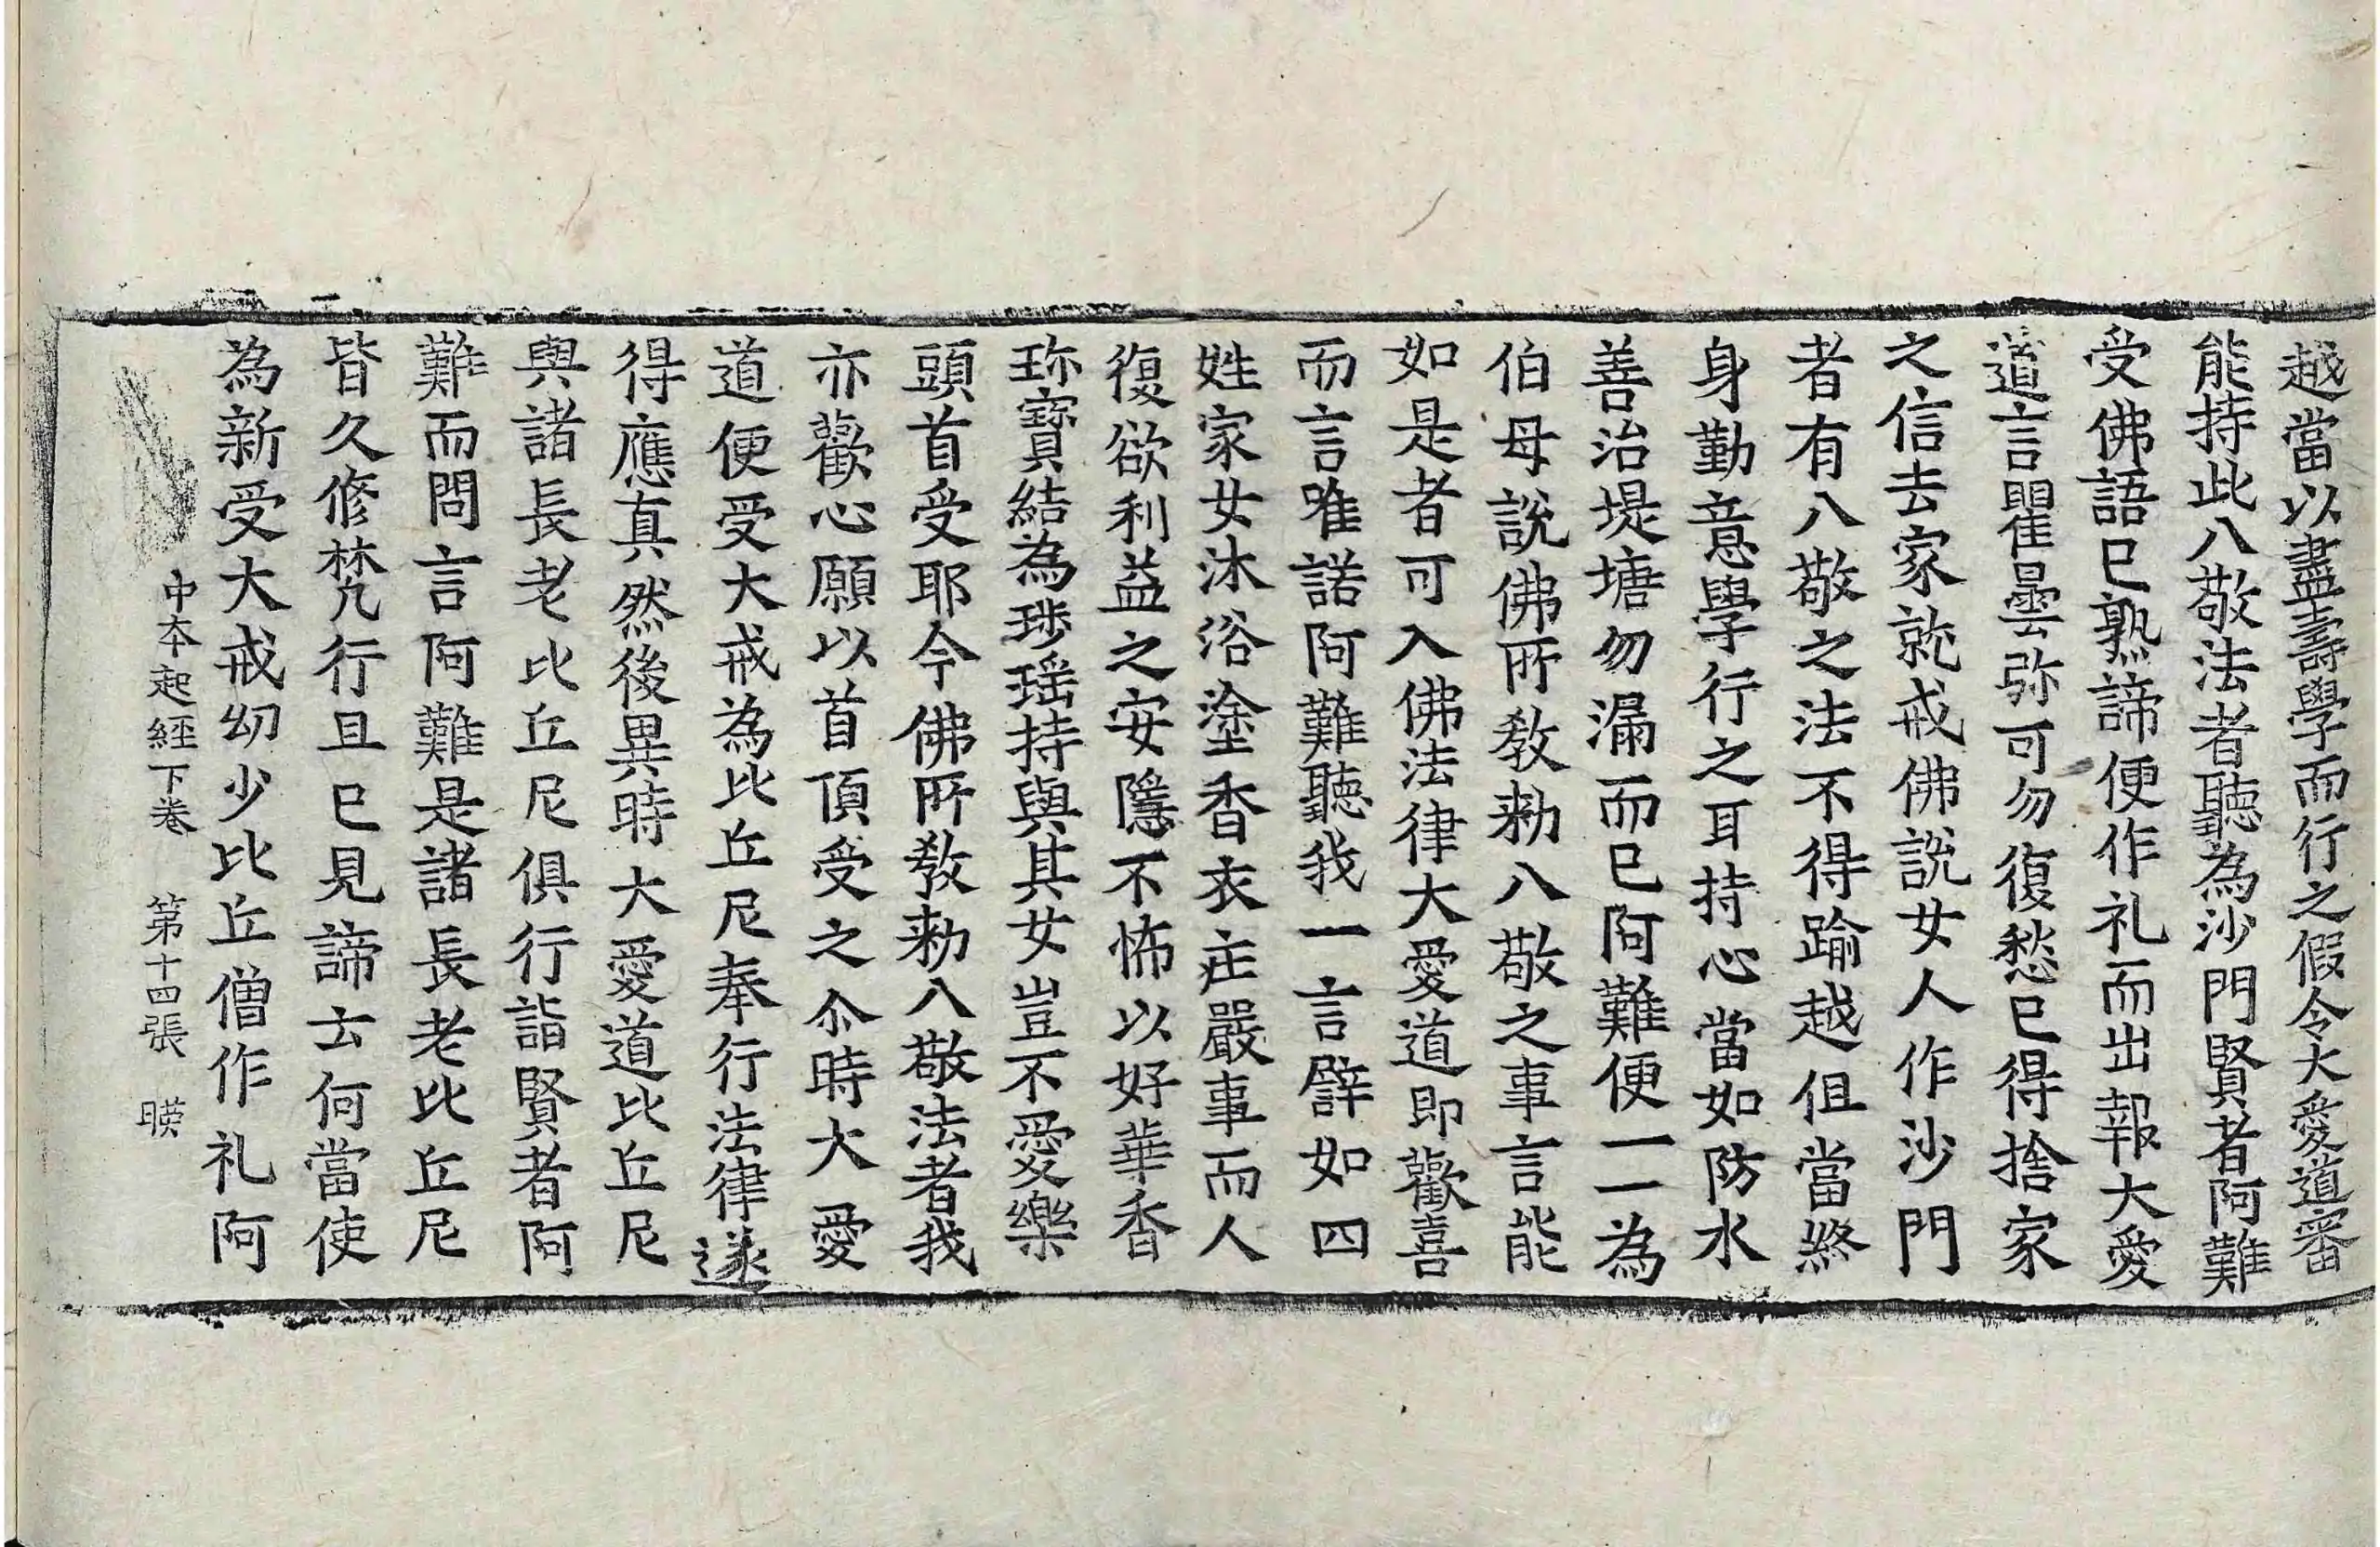 越當以盡壽學而行之假令大愛道審
能持此八敬法者聽為沙門賢者阿難
受佛語已熟諦便作礼而出報大愛
道言瞿曇弥可勿復愁已得捨家
之信去家就戒佛說女人作沙門
者有八敬之法不得踰越但當終
身勤意學行之耳持心當如防水
善治堤塘勿漏而已阿難便一一為
伯母說佛所教勑八敬之事言能
如是者可入佛法律大愛道即歡喜
而言唯諾阿難聽我一言譬如四
姓家女沐浴塗香衣庄嚴事而人
復欲利益之安隱不怖以好華香
珎寶結為珎瑶持與其女豈不愛樂
頭首受耶今佛所教勑八敬法者我
亦歡心願以首頂受之尒時大愛
道便受大戒為比丘尼奉行法律遂
得應真然後異時大愛道比丘尼
與諸長老比丘尼俱行詣賢者阿
難而問言阿難是諸長老比丘尼
皆久修梵行且已見諦云何當使
為新受大戒幼少比丘僧作礼阿
中本起經下卷 第十四張